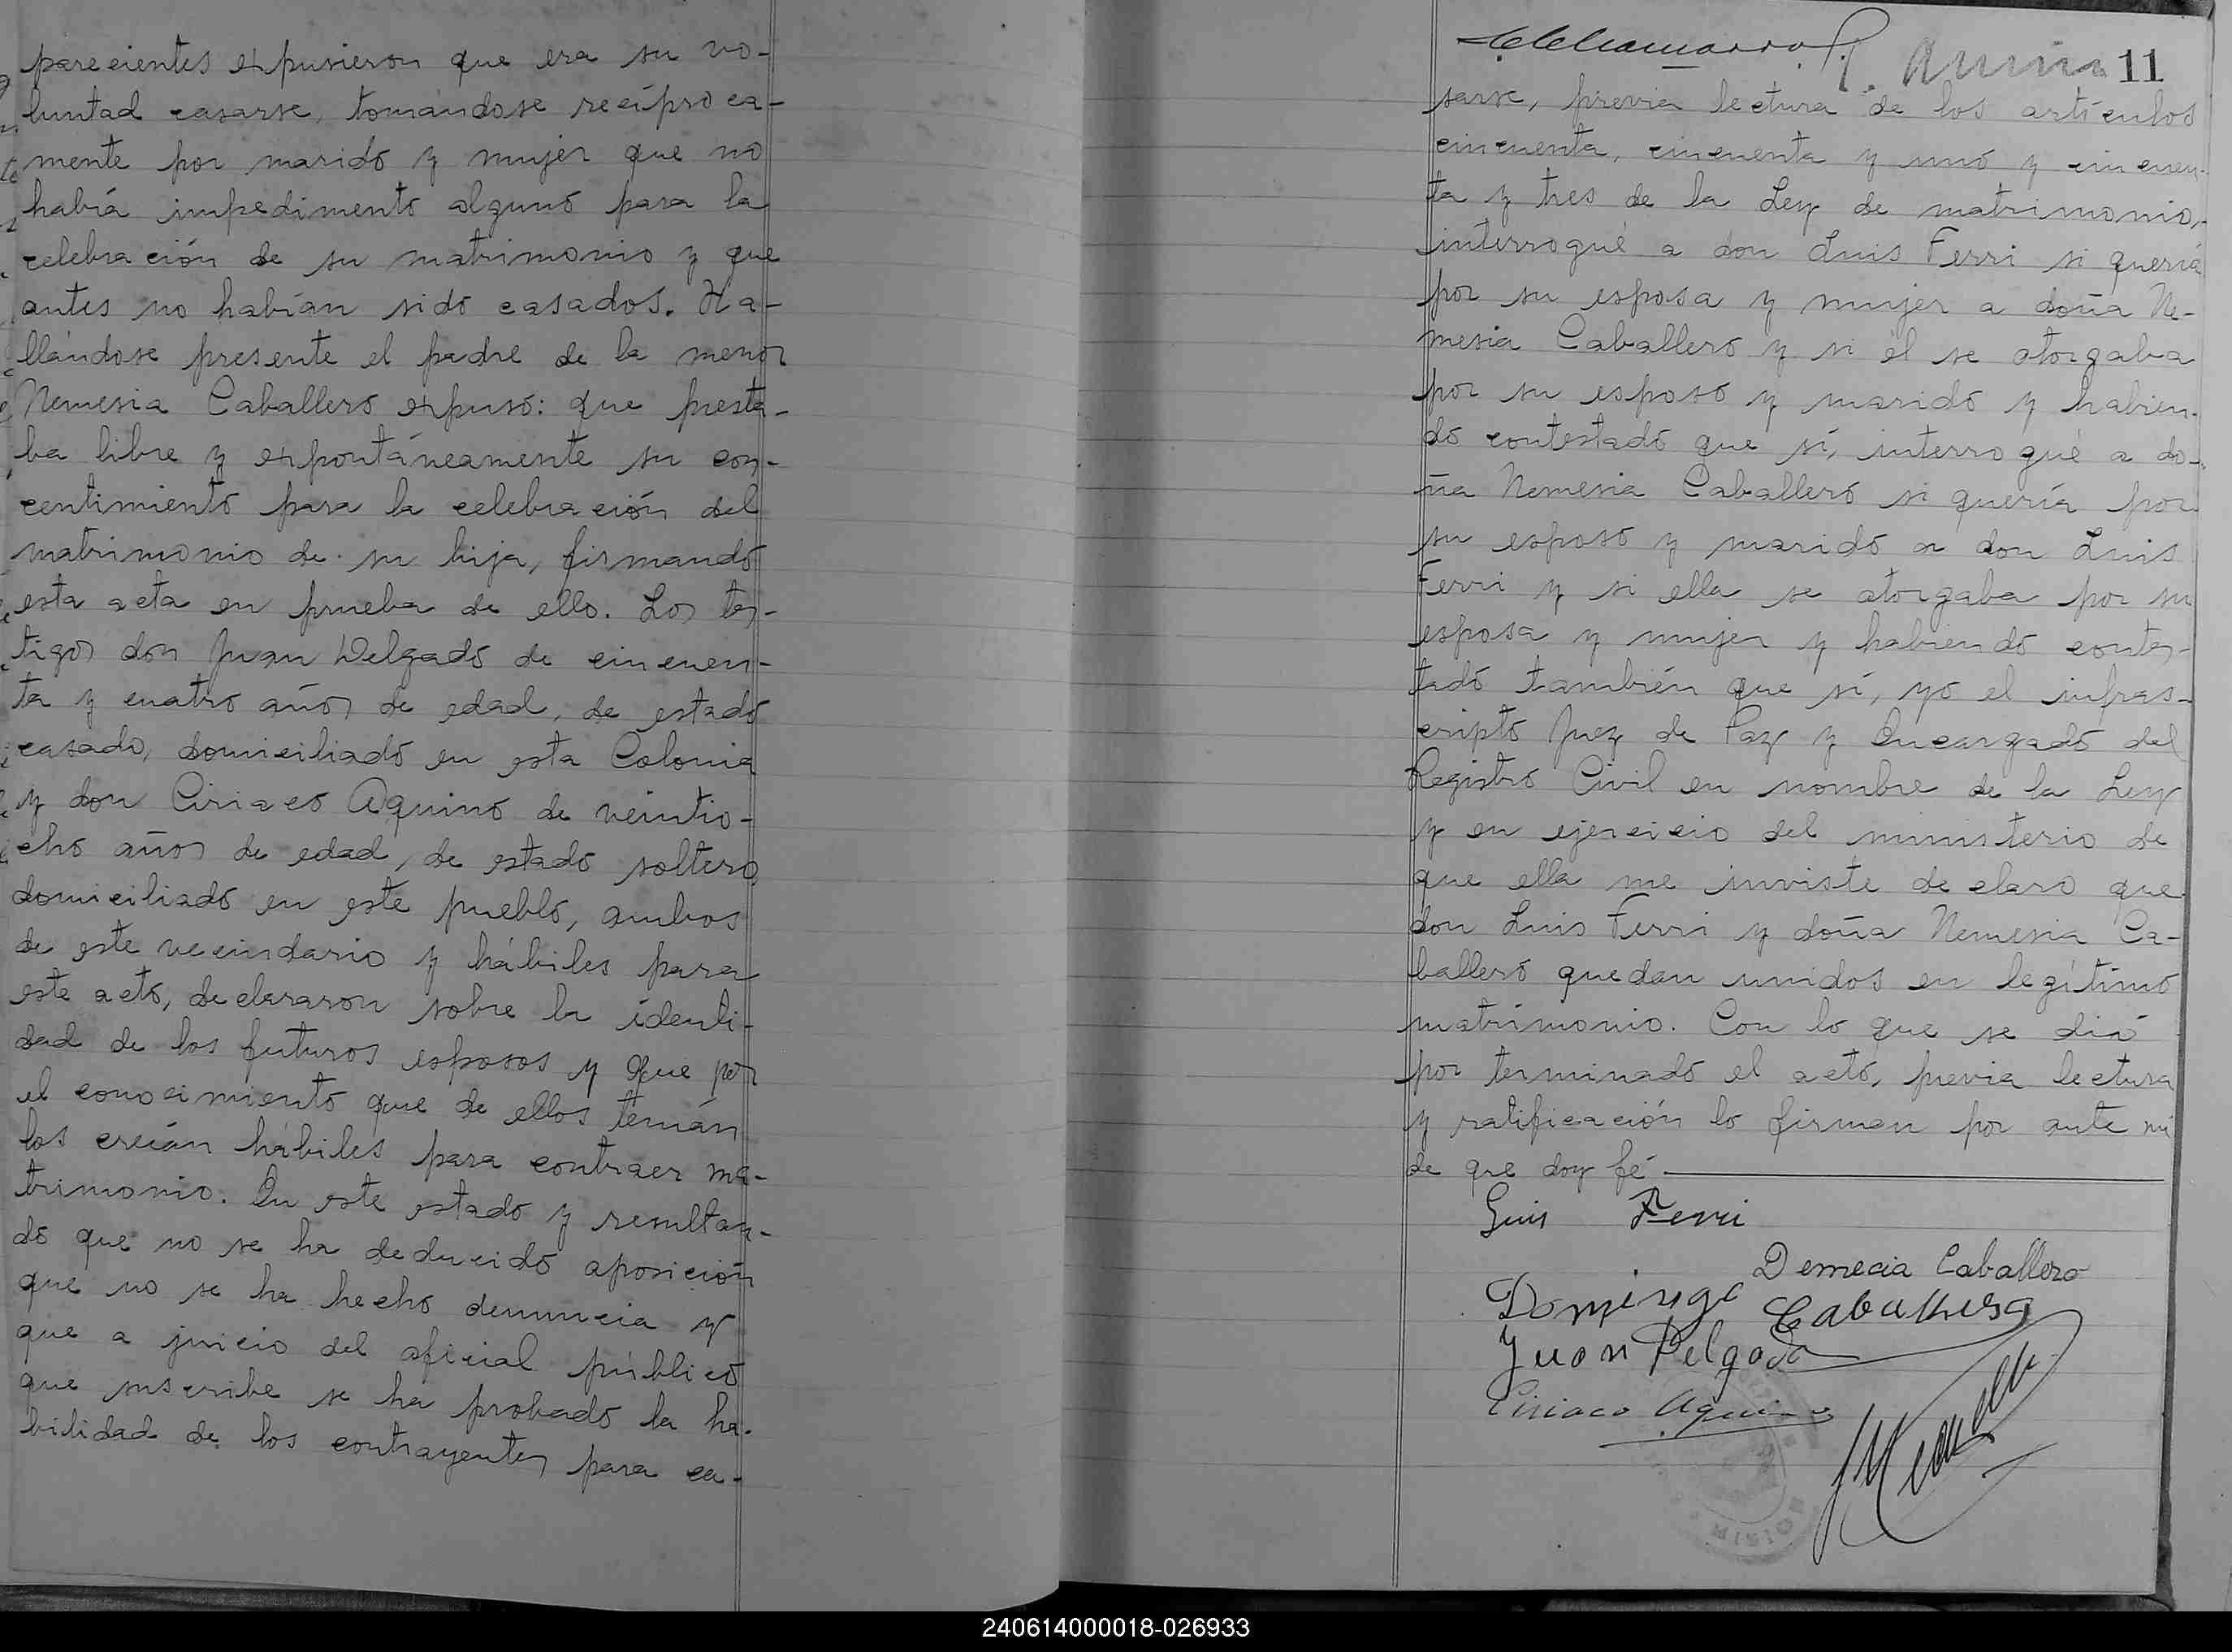 parecientes expusieron que era su vo-
luntad casarse, tomandose recíproca-
mente por marido y mujer que no
había impedimento alguno para la
celebración de su matrimonio y que
antes no habían sido casados. Ha-
llándose presente el padre de la menor
Nemesia Caballero expuso: que presta-
ba libre y expontáneamente su con-
centimiento para la celebración del
matrimonio de su hija, firmando
esta acta en prueba de ello. Los tes-
tigos don Juan Delgado de cincuen-
ta y cuatro años de edad, de estado
casado, domiciliado en esta Colonia
y don Ciriaco Aquino de veintio-
cho años de edad, de estado soltero
domiciliado en este pueblo, ambos
de este vecindario y hábiles para
este acto, declararon sobre la identi-
dad de los futuros esposos y que por
el conocimiento que de ellos tenían
los creían hábiles para contraer ma-
trimonio. En este estado y resultan-
do que no se ha deducido oposición
que no se ha hecho denuncia y
que a juicio del oficial público
que suscribe se ha probado la ha-
bilidad de los contrayentes para ca-
11
sarse, previa lectura de los artículos
cincuenta, cincuenta y uno y cincuen-
ta y tres de la Ley de matrimonio,
interrogué a don Luis Ferri si quería
por su esposa y mujer a doña Ne-
mesia Caballero y si él se otorgaba
por su esposo y marido y habien-
do contestado que sí, interrogué a do-
ña Nemesia Caballero si quería por
su esposo y marido a don Luis
Ferri y si ella se otorgaba por su
esposa y mujer y habiendo contes-
tado también que sí, yo el infras-
cripto Juez de Paz y Encargado del
Registro Civil en nombre de la Ley
y en ejercicio del ministerio de
que ella me inviste declaro que
don Luis Ferri y doña Nemesia Ca-
ballero quedan unidos en legítimo
matrimonio. Con lo que se dió
por terminado el acto, previa lectura
y ratificación lo firman por ante mi
de que doy fé
Luis Ferri
Demecia Caballero
Domingo Caballero
Juan Delgado
Ciriaco Aquino
240614000018-026933